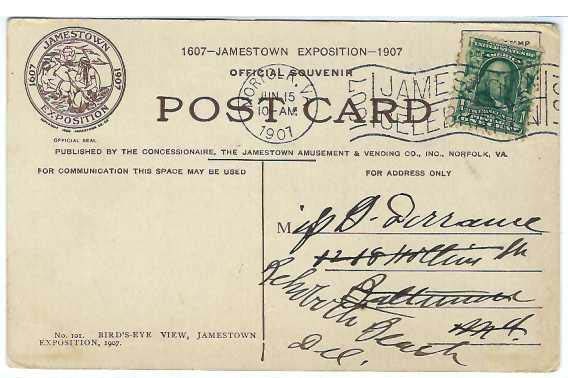 1607—JAMESTOWN EXPOSITION—1907
OFFICIAL SOUVENIR
POST CARD
JAMESTOWN
1607
1907
EXPOSITION
OFFICIAL SEAL
NORFOLK, VA.
JUN 15
10-AM
1907
PUBLISHED BY THE CONCESSIONAIRE, THE JAMESTOWN AMUSEMENT & VENDING CO., INC., NORFOLK, VA.
FOR COMMUNICATION THIS SPACE MAY BE USED
FOR ADDRESS ONLY
Miss D. Dorrance
1218 Hollins St
Baltimore
Md.
Rehoboth Beach
Del.
No. 101. BIRD'S-EYE VIEW, JAMESTOWN
EXPOSITION, 1907.